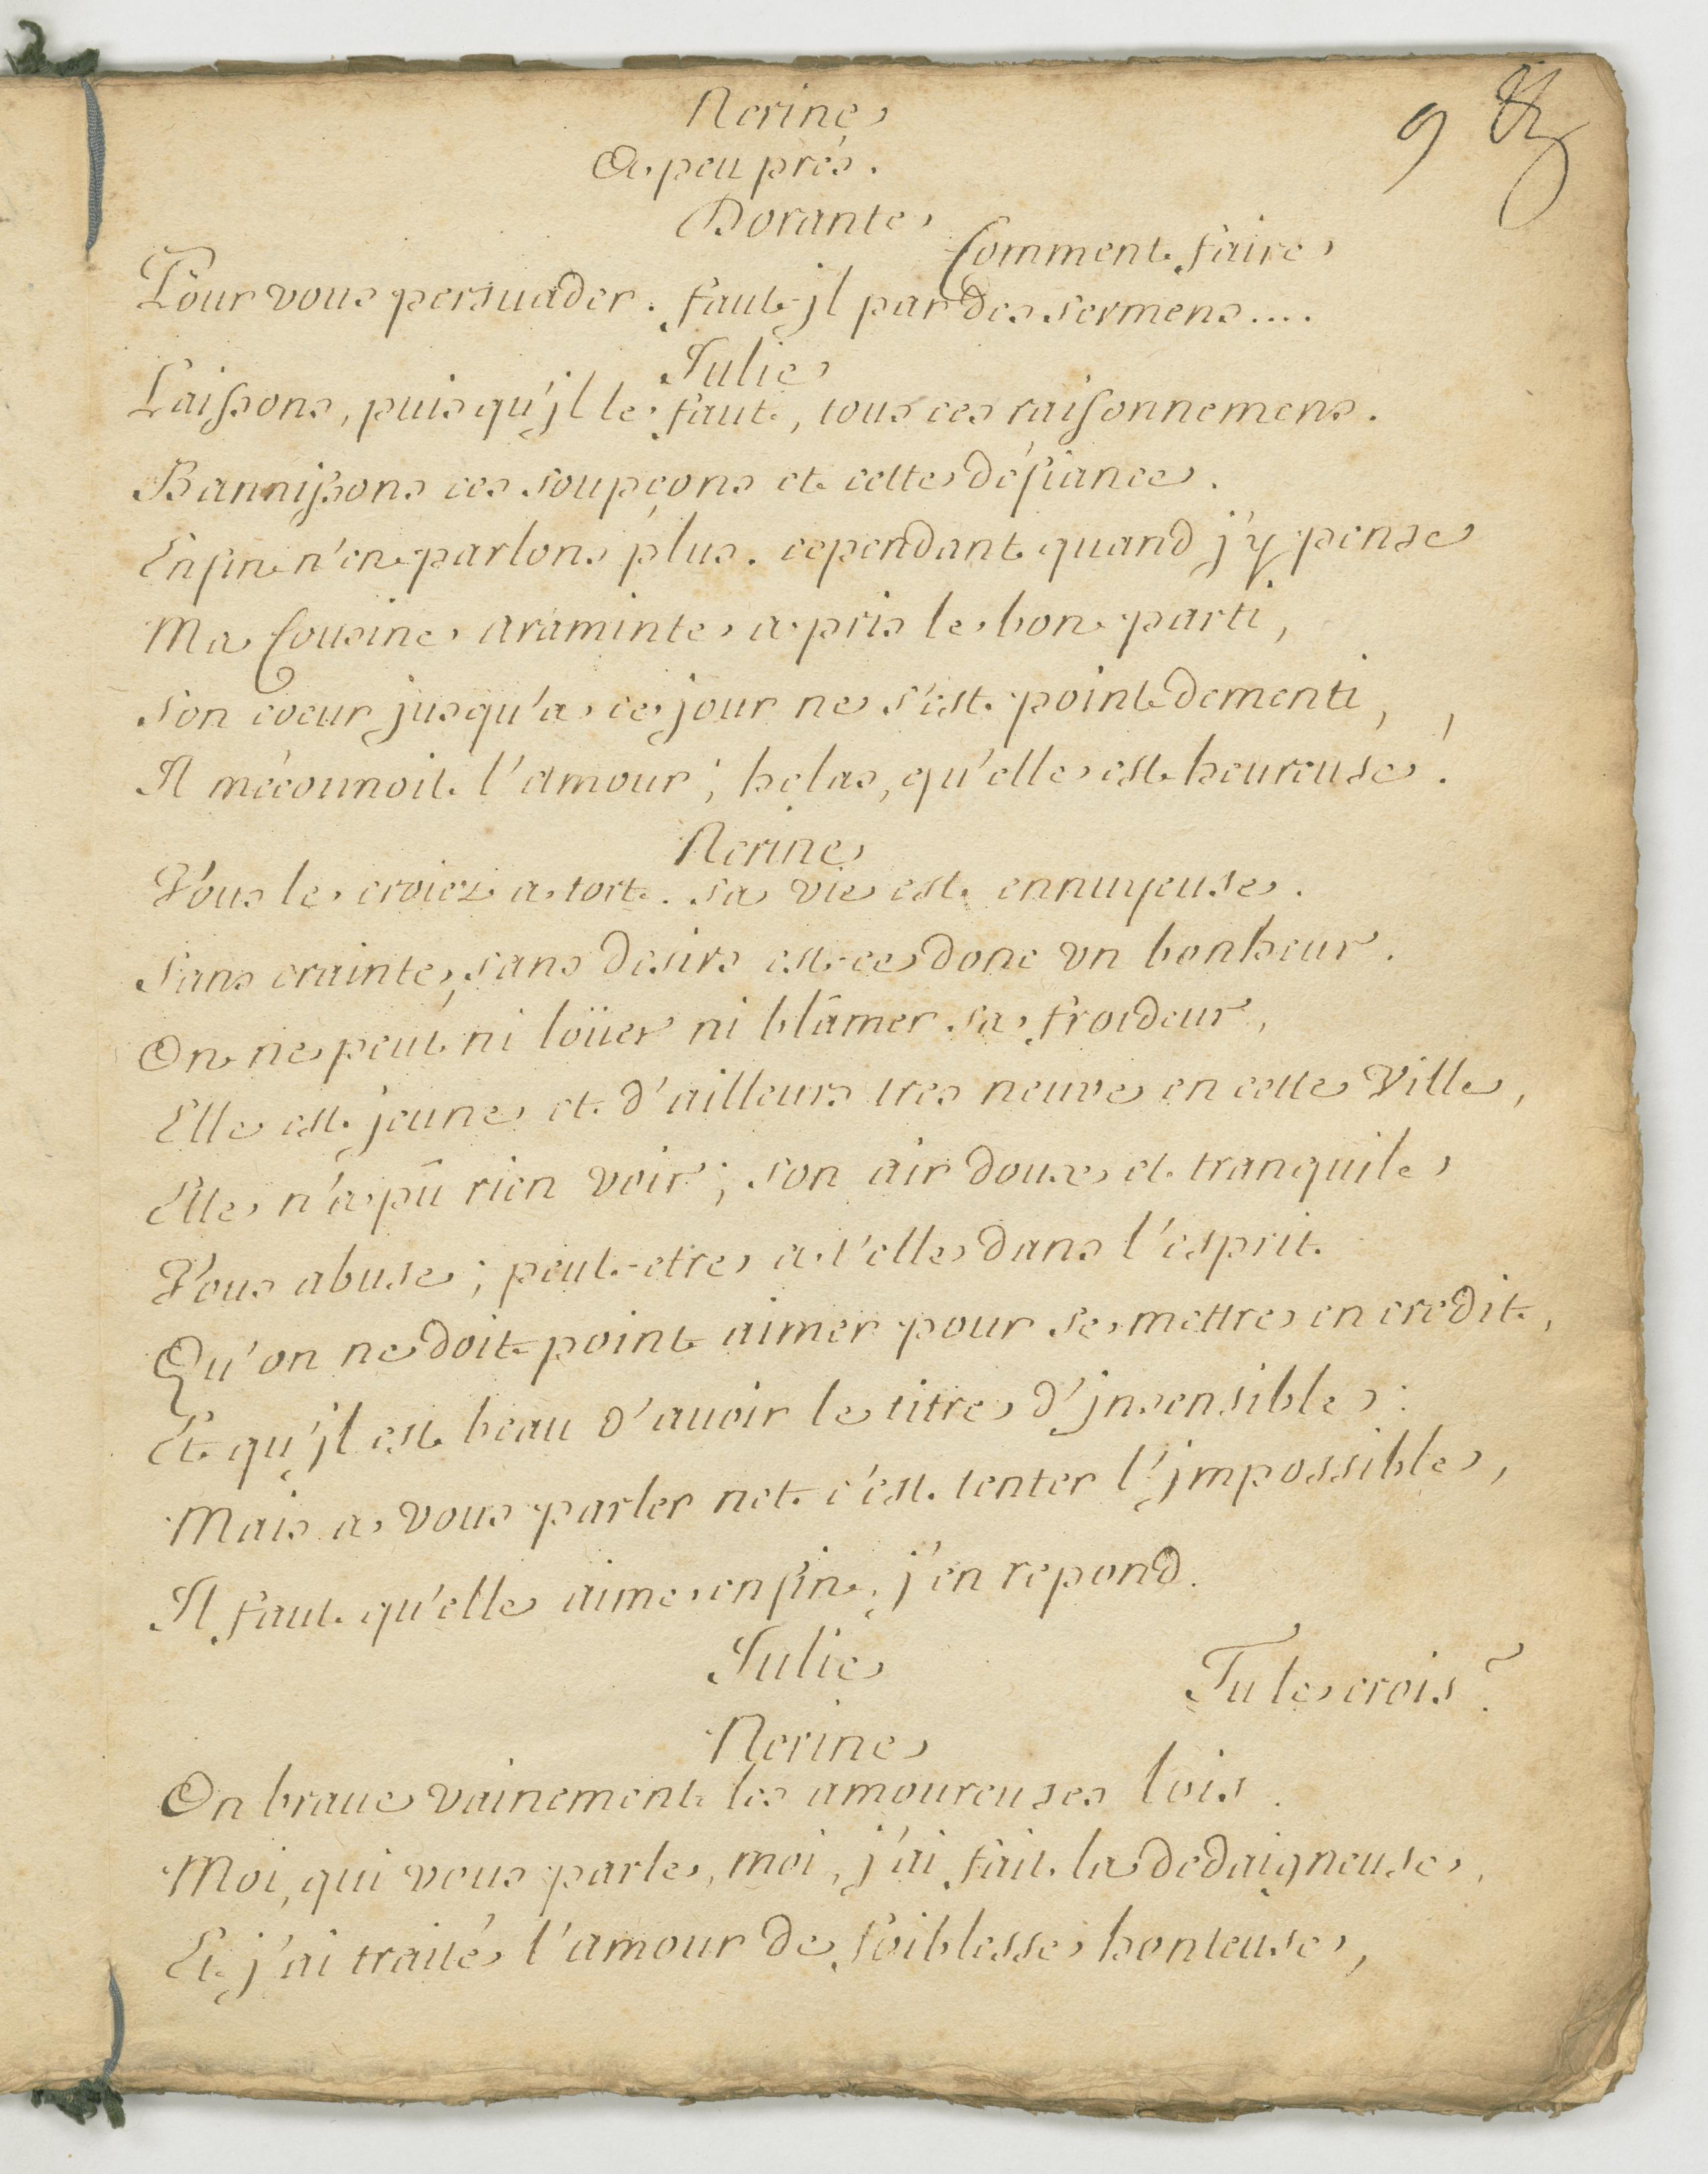 9
Nerine
A peu près.
Dorante
Comment faire
Pour vous persuader. faut-jl par des sermens....
Julie
Laissons, puisqu'jl le faut, tous ces raisonnemens.
Bannissons ces soupçons et cette défiance.
Enfin n'en parlons plus. cependant quand j'y pense
Ma Cousine araminte a pris le bon parti,
Son coeur jusqu'a ce jour ne s'est point dementi,
Il méconnoit l'amour; helas, qu'elle est heureuse!
Nerine
Vous le croiez a tort. sa vie est ennuyeuse.
Sans crainte, sans desirs est-ce donc un bonheur.
On ne peut ni loüer ni blâmer sa froideur,
Elle est jeune et d'ailleurs tres neuve en cette Ville,
Elle n'a pû rien voir; son air doux et tranquile
Vous abuse; peut-etre a t'elle dans l'esprit
Qu'on ne doit point aimer pour se mettre en credit,
Et qu'jl est beau d'auoir le titre d'jnsensible:
Mais a vous parler net c'est tenter l'jmpossible,
Il faut qu'elle aime enfin, j'en repond.
Julie
Tu le crois?
Nerine
On braue vainement les amoureuses lois.
Moi, qui vous parle, moi, j'ai fait la dedaigneuse,
Et j'ai traité l'amour de foiblesse honteuse,